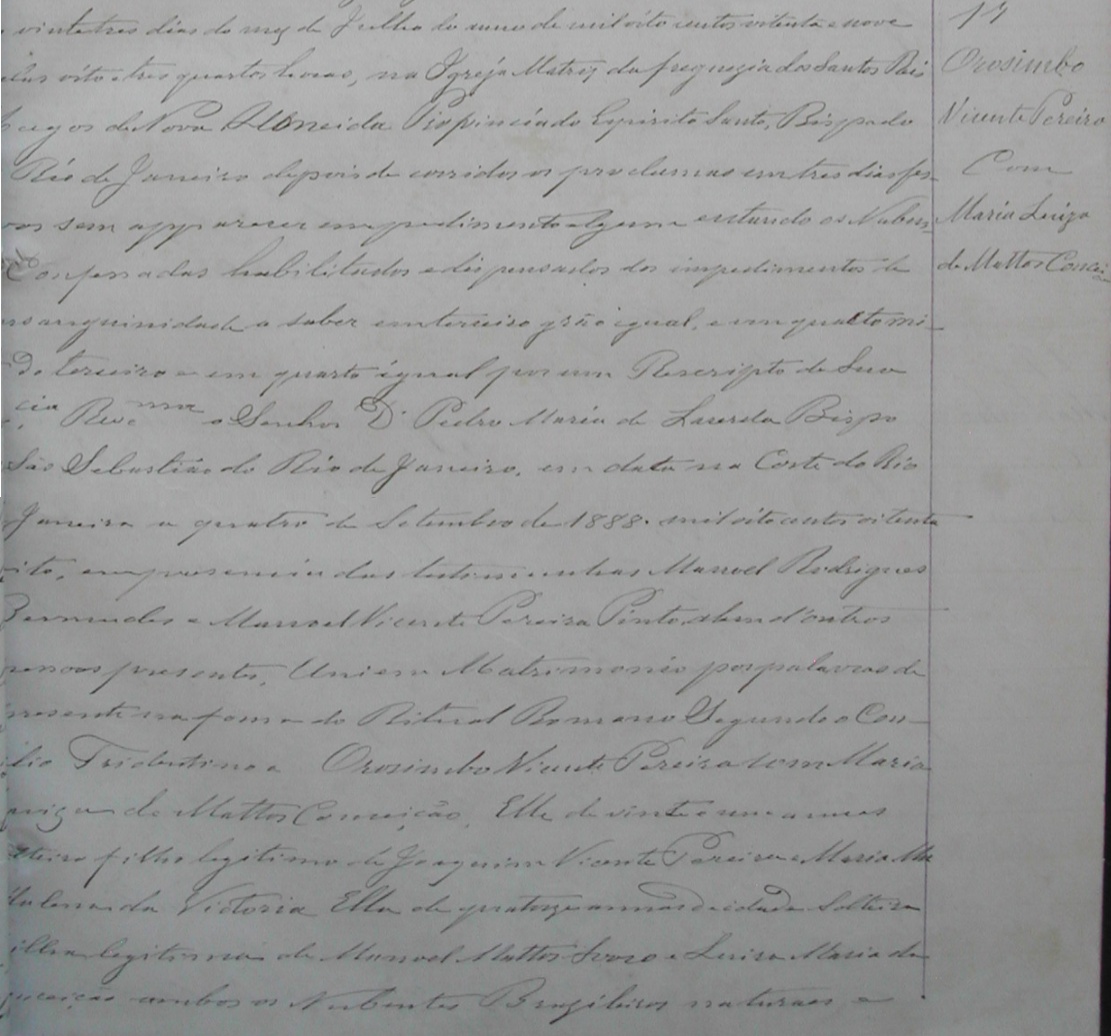 vinte tres dias do mez de Julho do anno de mil oito centos oitenta e nove
oito e tres quartos horas, na Igreja Matriz da freguezia dos Santos Reis
Magos de Nova Almeida Propincia do Espirito Santo, Bispado
Rio de Janeiro depois de corridos os proclamas em tres dias fes-
vos sem apparecer empedimento algum estando os Nuben-
Confessados habilitados e dispensados dos impedimentos de
nsanguinidade a saber em terceiro gráo igual, e em quarto mi-
do terceiro e em quarto igual por um Rescripto de Sua
cia Reve.ma o Senhor D. Pedro Maria de Lacerda Bispo
São Sebastião do Rio de Janeiro, em data na Corte do Rio
Janeiro a quatro de Setembro de 1888. mil oito centos oitenta
oito, em presencia das testimunhas Manoel Rodrigues
Bermudes e Manoel Vicente Pereira Pinto, alem d'outros
pessoas presente, Uni em Matrimonio por palavras de
presente na forma do Ritual Romano Segundo o Con-
ilio Tridentino a Orosimbo Vicente Pereira com Maria
uiza de Mattos Conceição, Elle de vinte e um annos
olteiro filho legitimo de Joaquim Vicente Pereira e Maria Ma
dalena da Victoria Ella de quatorze annos de idade Solteira
filha legitima de Manoel Mattos e Luiza Maria da
nceição ambos os Nubentes Brazileiros naturaes e
17
Orosimbo
Vicente Pereira
Com
Maria Luiza
de Mattos Concei